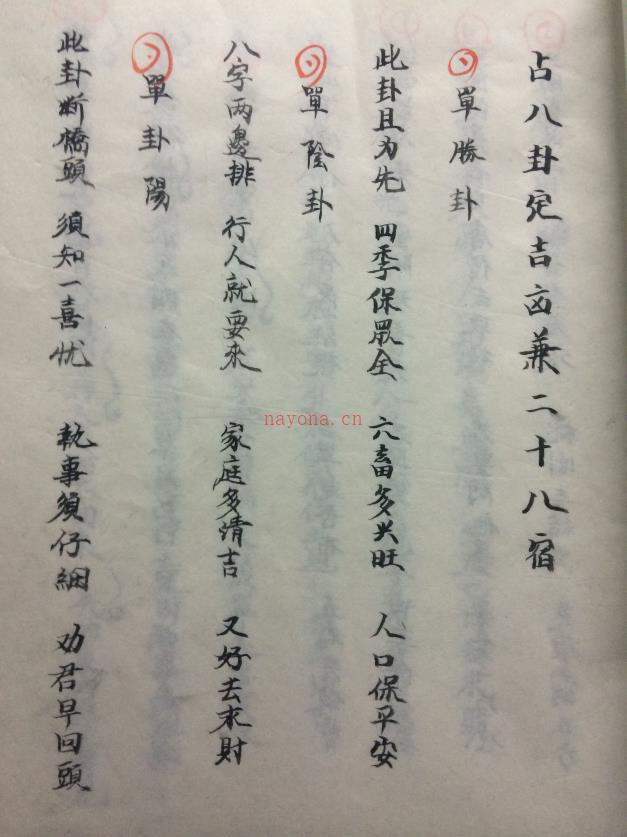 占八卦定吉凶兼二十八宿
單勝卦
此卦且为先 四季保眾全 六畜多兴旺 人口保平安
單陰卦
八字两邊排 行人就要來 家庭多清吉 又好去求財
單卦陽
此卦断橋頭 須知一喜忧 執事須仔細 劝君早回頭
nayona.cn